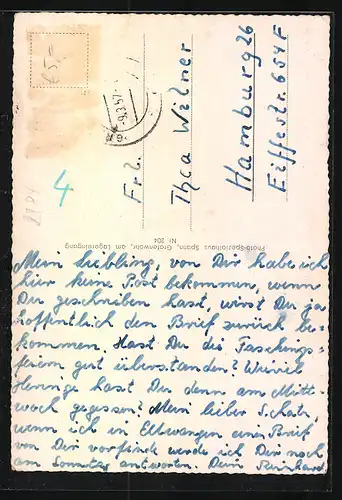 €5,-
9.3.57.
4
Frl.
Thea Wilner
Hamburg 26
Eiffestr. 654 F
Photo-Spezialhaus Spann, Grafenwöhr, am Lagereingang
Nr. 204
Mein Liebling, von Dir habe ich
hier keine Post bekommen, wenn
Du geschrieben hast, wirst Du ja
hoffentlich den Brief zurück be-
kommen, Hast Du die Faschings-
feiern gut überstanden? Wieviel
Heringe hast Du denn am Mitt-
woch gegessen? Mein lieber Schatz,
wenn ich in Ellwangen einen Brief
von Dir vorfinde werde ich Dir noch
am Sonntag antworten. Dein Reinhard